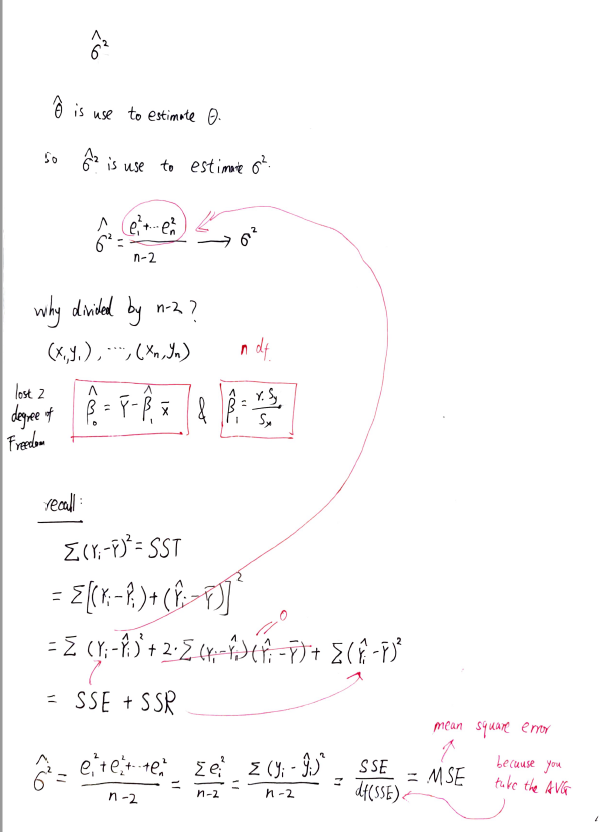 σ̂²
θ̂ is use to estimate θ.
so σ̂² is use to estimate σ².
σ̂² = (e₁² + ⋯ eₙ²) / (n-2) → σ²
why divided by n-2?
(x₁,y₁), ⋯, (xₙ,yₙ) n df.
lost 2 degree of Freedom
β̂₀ = Ȳ - β̂₁ x̄ & β̂₁ = r·Sy / Sx
recall:
Σ(Yᵢ-Ȳ)² = SST
= Σ[(Yᵢ-Ŷᵢ)+(Ŷᵢ-Ȳ)]²
= Σ(Yᵢ-Ŷᵢ)² + 2·Σ(Yᵢ-Ŷᵢ)(Ŷᵢ-Ȳ) + Σ(Ŷᵢ-Ȳ)²
= 0
= SSE + SSR
mean square error
σ̂² = (e₁²+e₂²+⋯+eₙ²) / (n-2) = Σeᵢ² / (n-2) = Σ(yᵢ-ŷᵢ)² / (n-2) = SSE / df(SSE) = MSE
because you
take the AVG